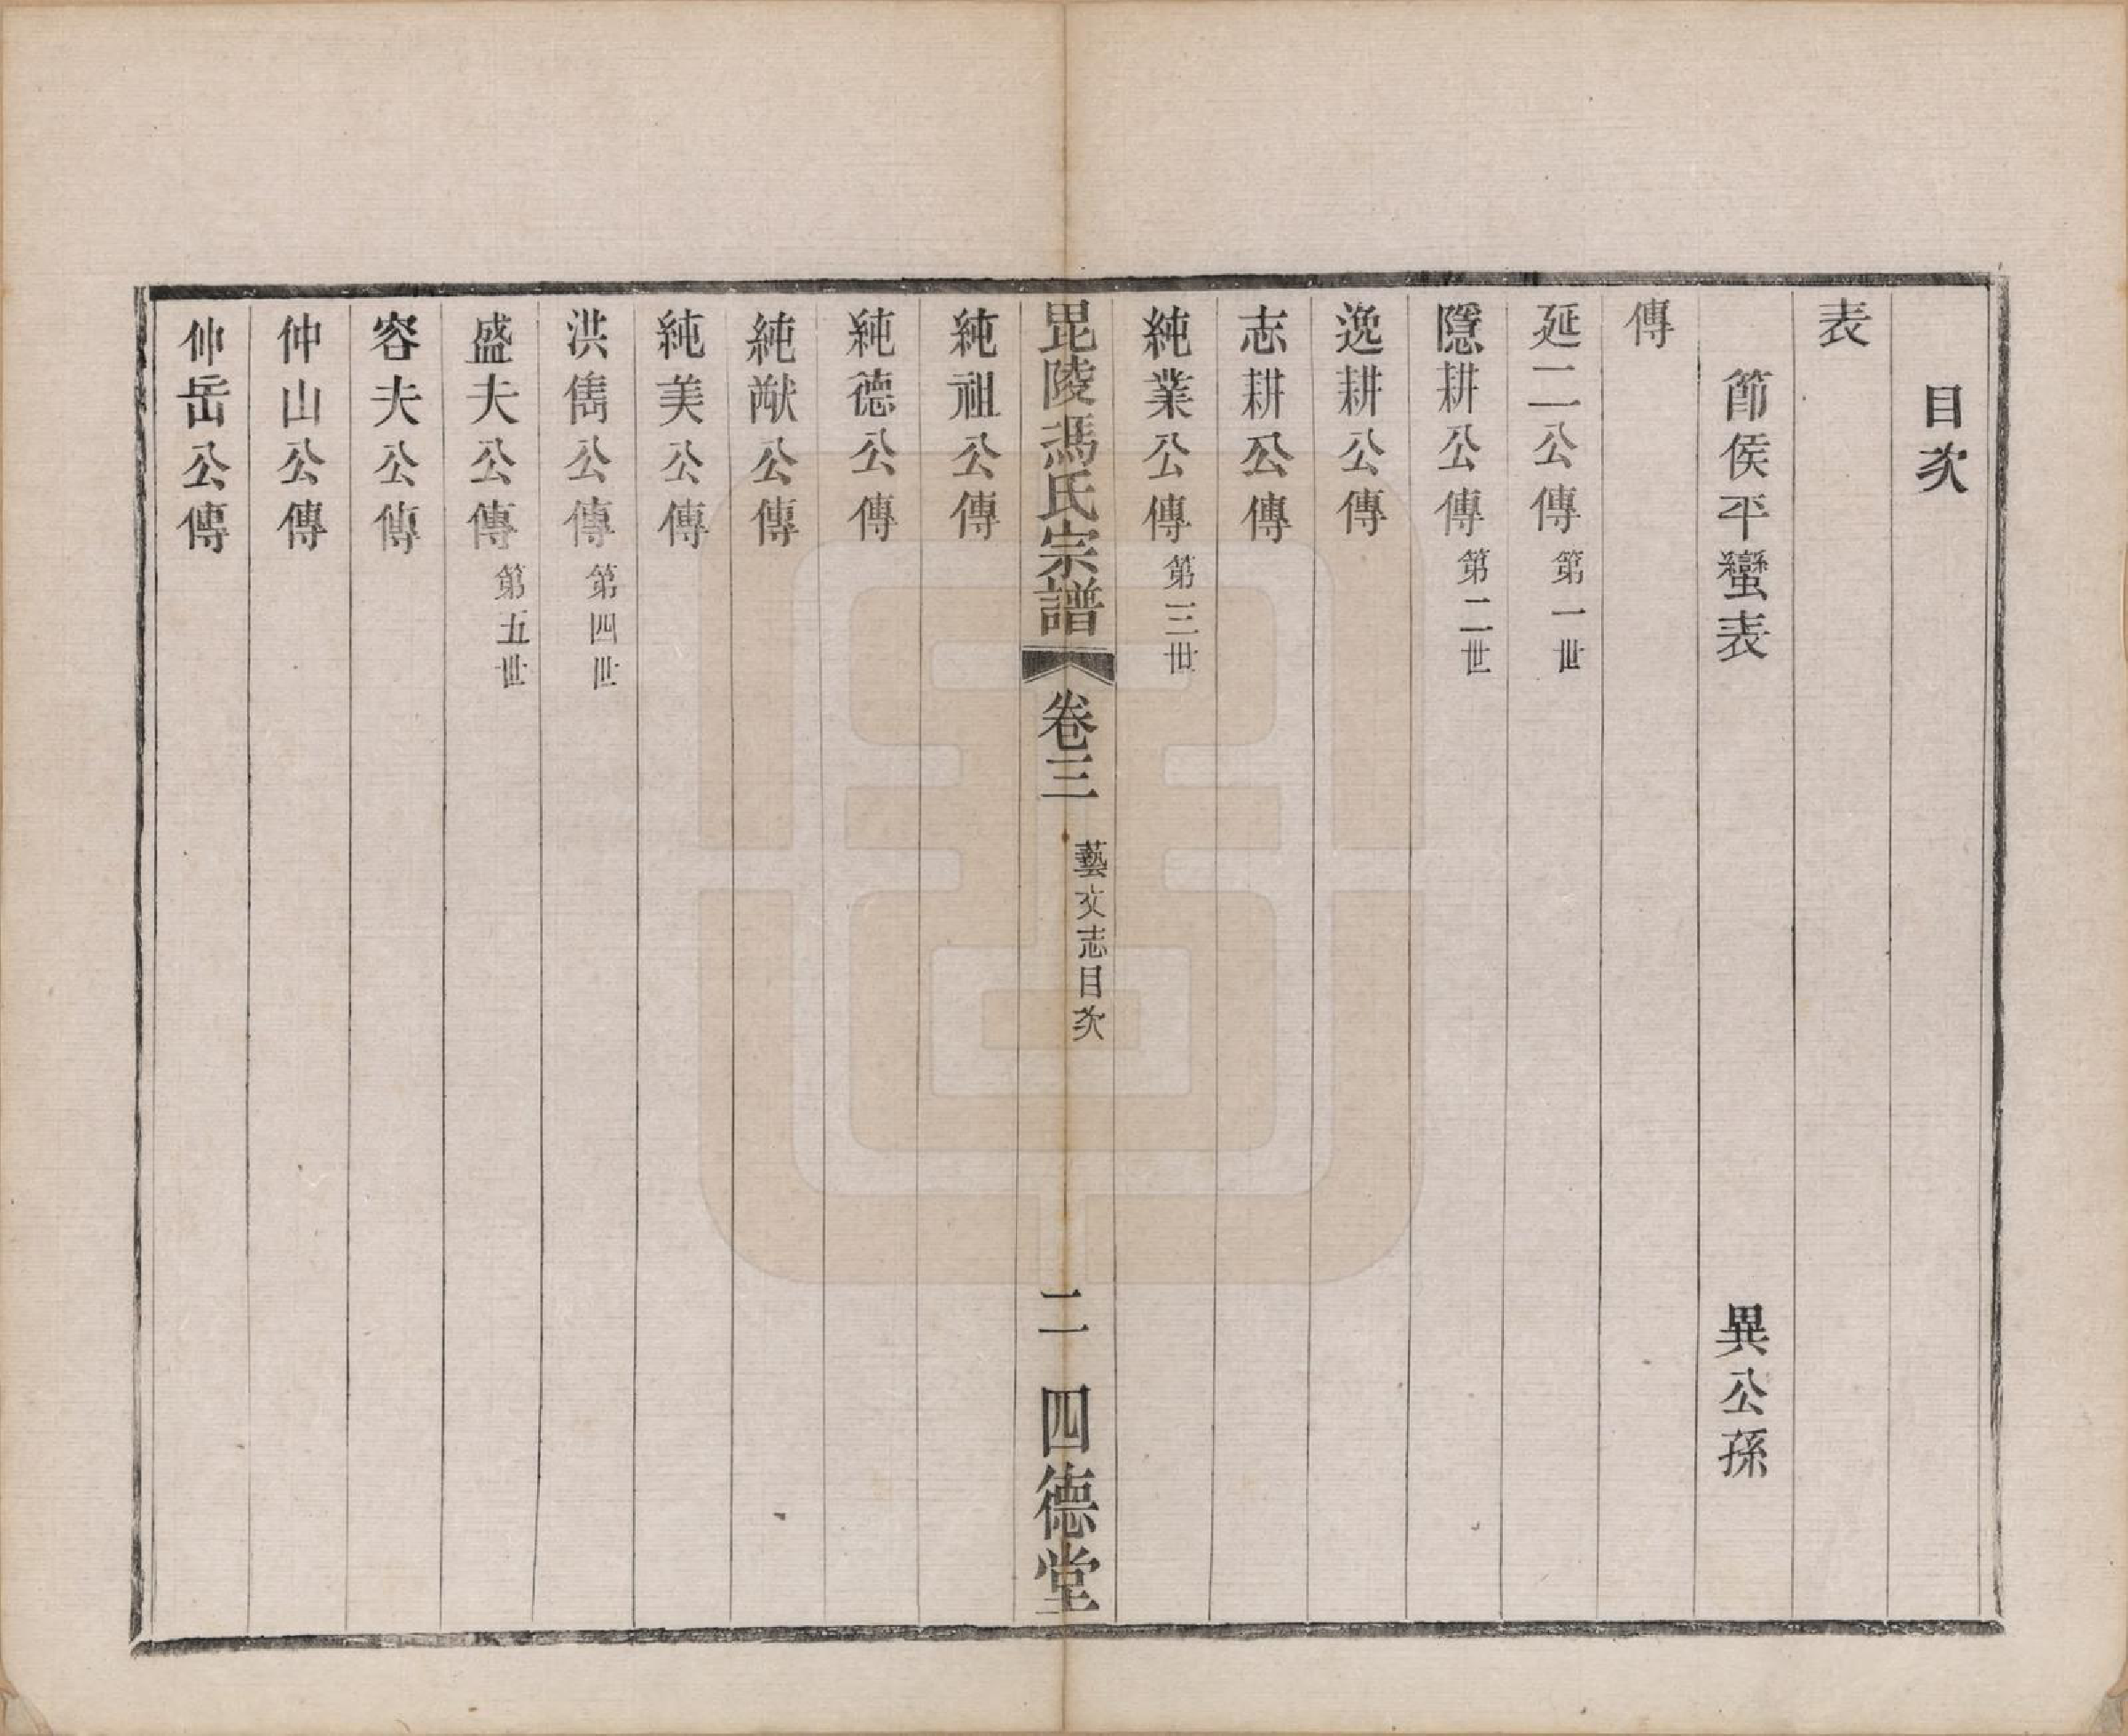 目次
表
節侯平蠻表 異公孫
傳
延二公傳 第一世
隱耕公傳 第二世
逸耕公傳
志耕公傳
純業公傳 第三世
毘陵馮氏宗譜 卷三 藝文志目次 二 四德堂
純祖公傳
純德公傳
純猷公傳
純美公傳
洪儁公傳 第四世
盛夫公傳 第五世
容夫公傳
仲山公傳
仲岳公傳